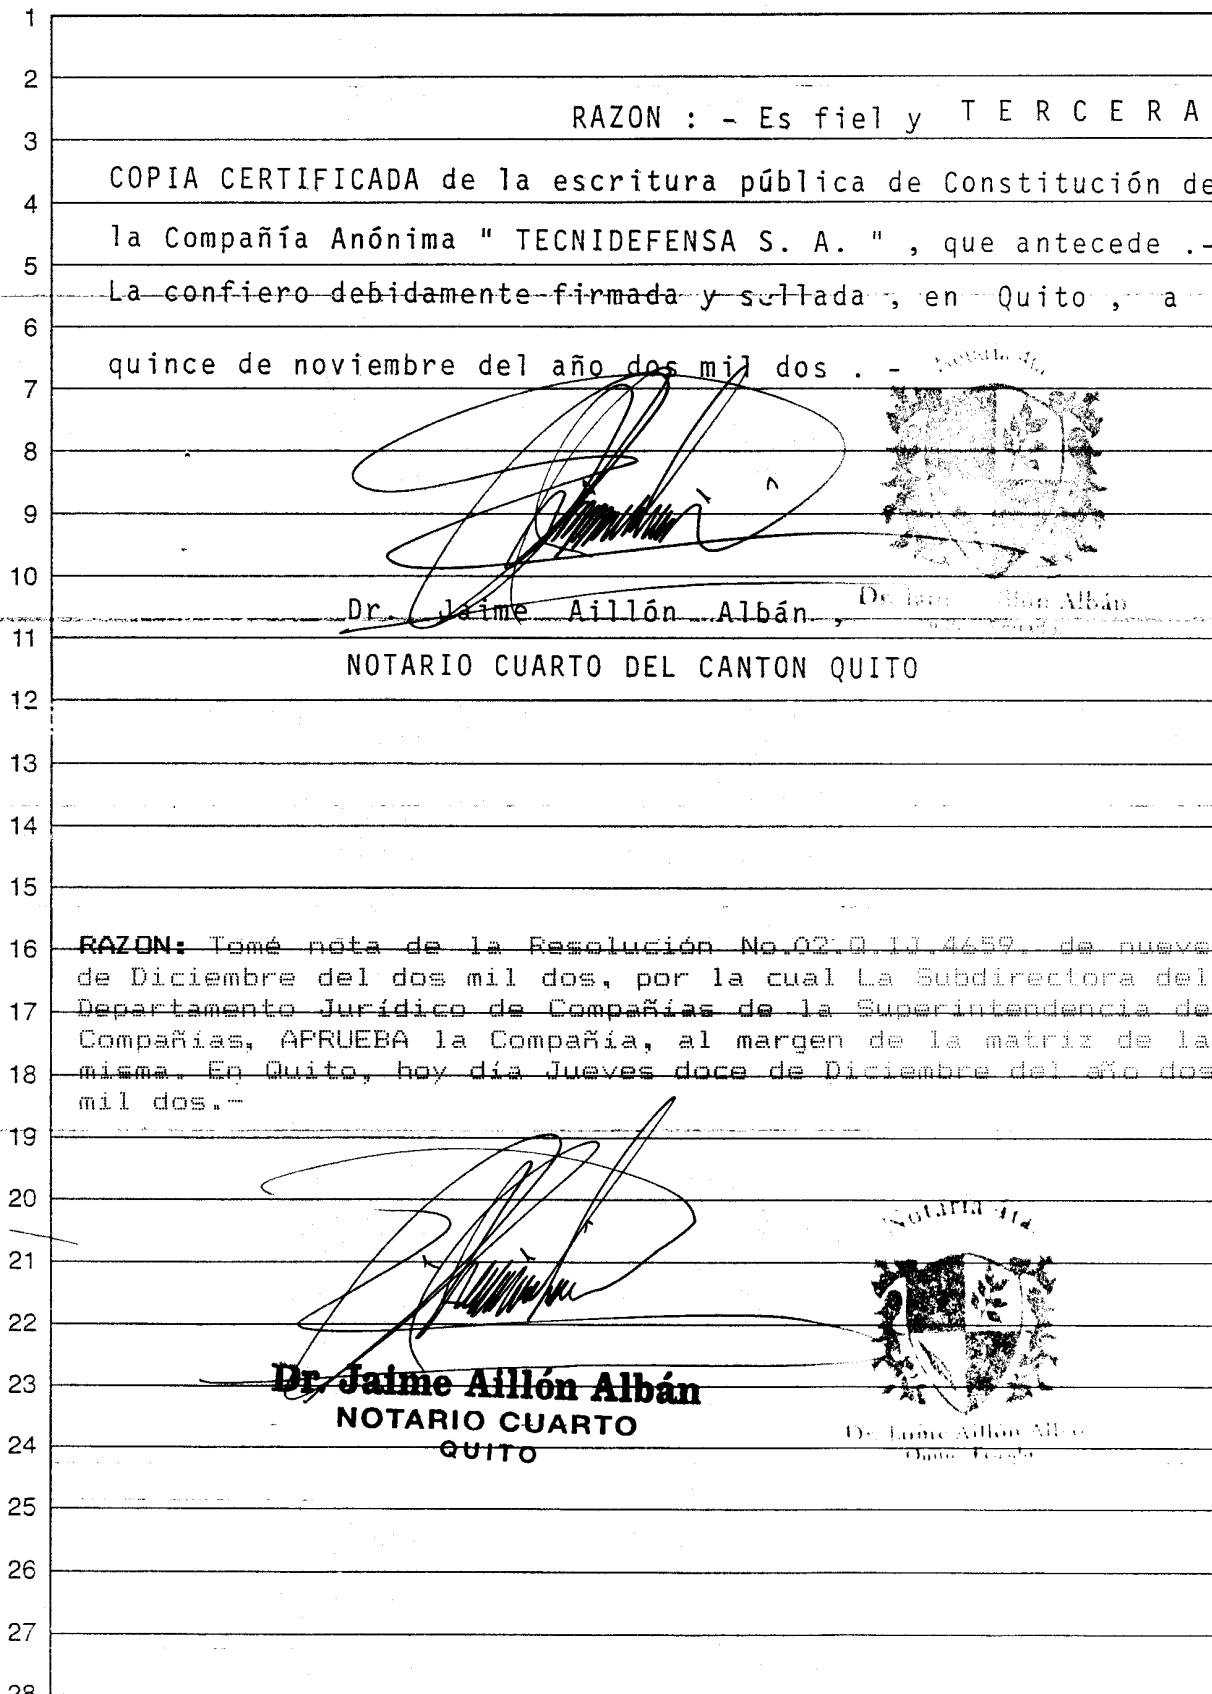 1
2
RAZON : - Es fiel y T E R C E R A
3
COPIA CERTIFICADA de la escritura pública de Constitución de
4
la Compañía Anónima " TECNIDEFENSA S. A. " , que antecede .-
5
La confiero debidamente firmada y sellada , en Quito , a
6
quince de noviembre del año dos mil dos . -
Notaría 4ta
7
8
9
10
Dr. Jaime Aillón Albán ,
Dr. Aillón Albán
11
NOTARIO CUARTO DEL CANTON QUITO
12
13
14
15
16 RAZON: Tomé nota de la Resolución No.02.Q.IJ.4659, de nueve
de Diciembre del dos mil dos, por la cual La Subdirectora del
17 Departamento Jurídico de Compañías de la Superintendencia de
Compañías, APRUEBA la Compañía, al margen de la matriz de la
18 misma. En Quito, hoy día Jueves doce de Diciembre del año dos
mil dos.-
19
20
Notaría 4ta
21
22
23 Dr. Jaime Aillón Albán
NOTARIO CUARTO
Dr. Jaime Aillón
24 QUITO
Quito
25
26
27
28